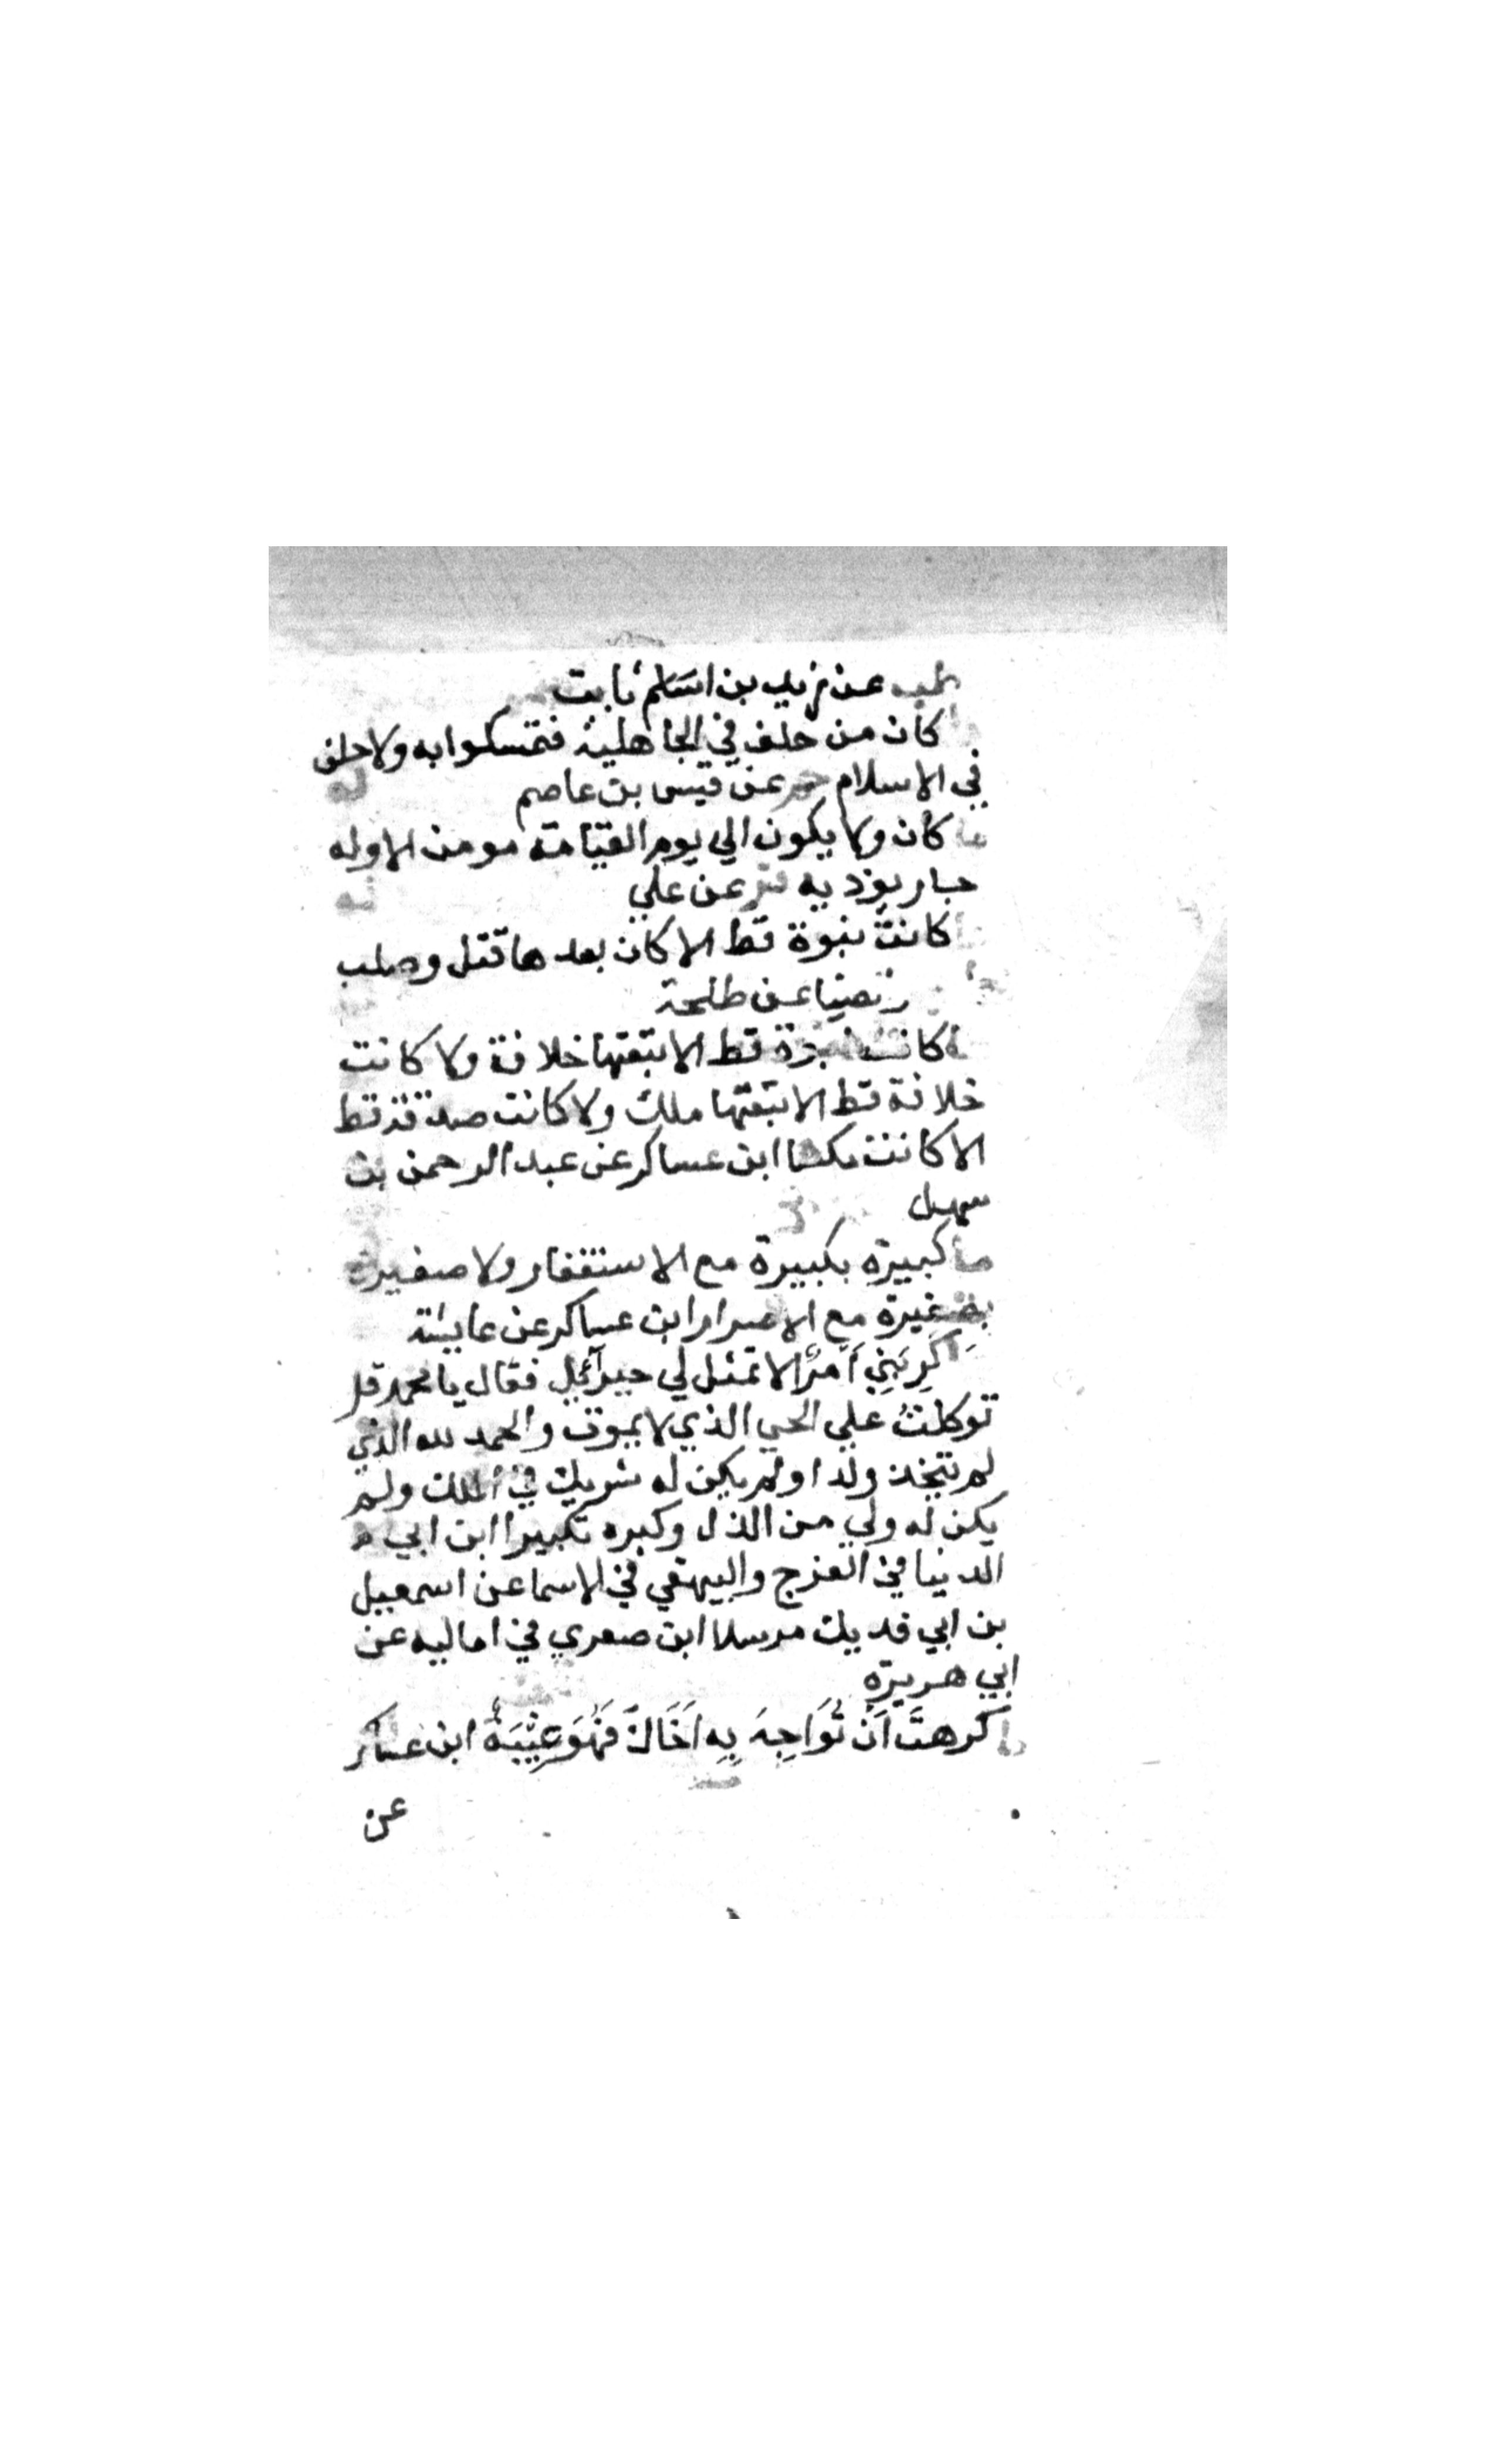 طب عن زيد بن اسلم ثابت
كان من حلف في الجاهلية فتمسكوا به ولا حلف
في الاسلام حم عن قيس بن عاصم
ما كان ولا يكون الي يوم القيامة مومن الا وله
جار يوذيه فر عن علي
كانت نبوة قط الا كان بعدها قتل وصلب
عن طلحة
ما كانت نبوة قط الا تبعتها خلافة ولا كانت
خلافة قط الا تبعتها ملك ولا كانت صدقة قط
الا كانت مكسا ابن عساكر عن عبد الرحمن بن
سهل
ما كبيرة بكبيرة مع الاستغفار ولا صغيرة
بصغيرة مع الاصرار ابن عساكر عن عايشة
كَرِبَنِي اَمْرٌ الا تمثل لي جبرآئيل فقال يا محمد قل
توكلتُ علي الحي الذي لا يموت والحمد لله الذي
لم يتخذ ولدا ولم يكن له شريك في الملك ولم
يكن له ولي من الذل وكبره تكبيرا ابن ابي
الدنيا في الفرج والبيهقي في الاسما عن اسمعيل
بن ابي فديك مرسلا ابن صصري في اماليه عن
ابي هريرة
ما كرهتَ اَنْ تُوَاجِهَ بِهِ اَخَاكَ فَهُوَ غِيْبَةٌ ابن عساكر
عن